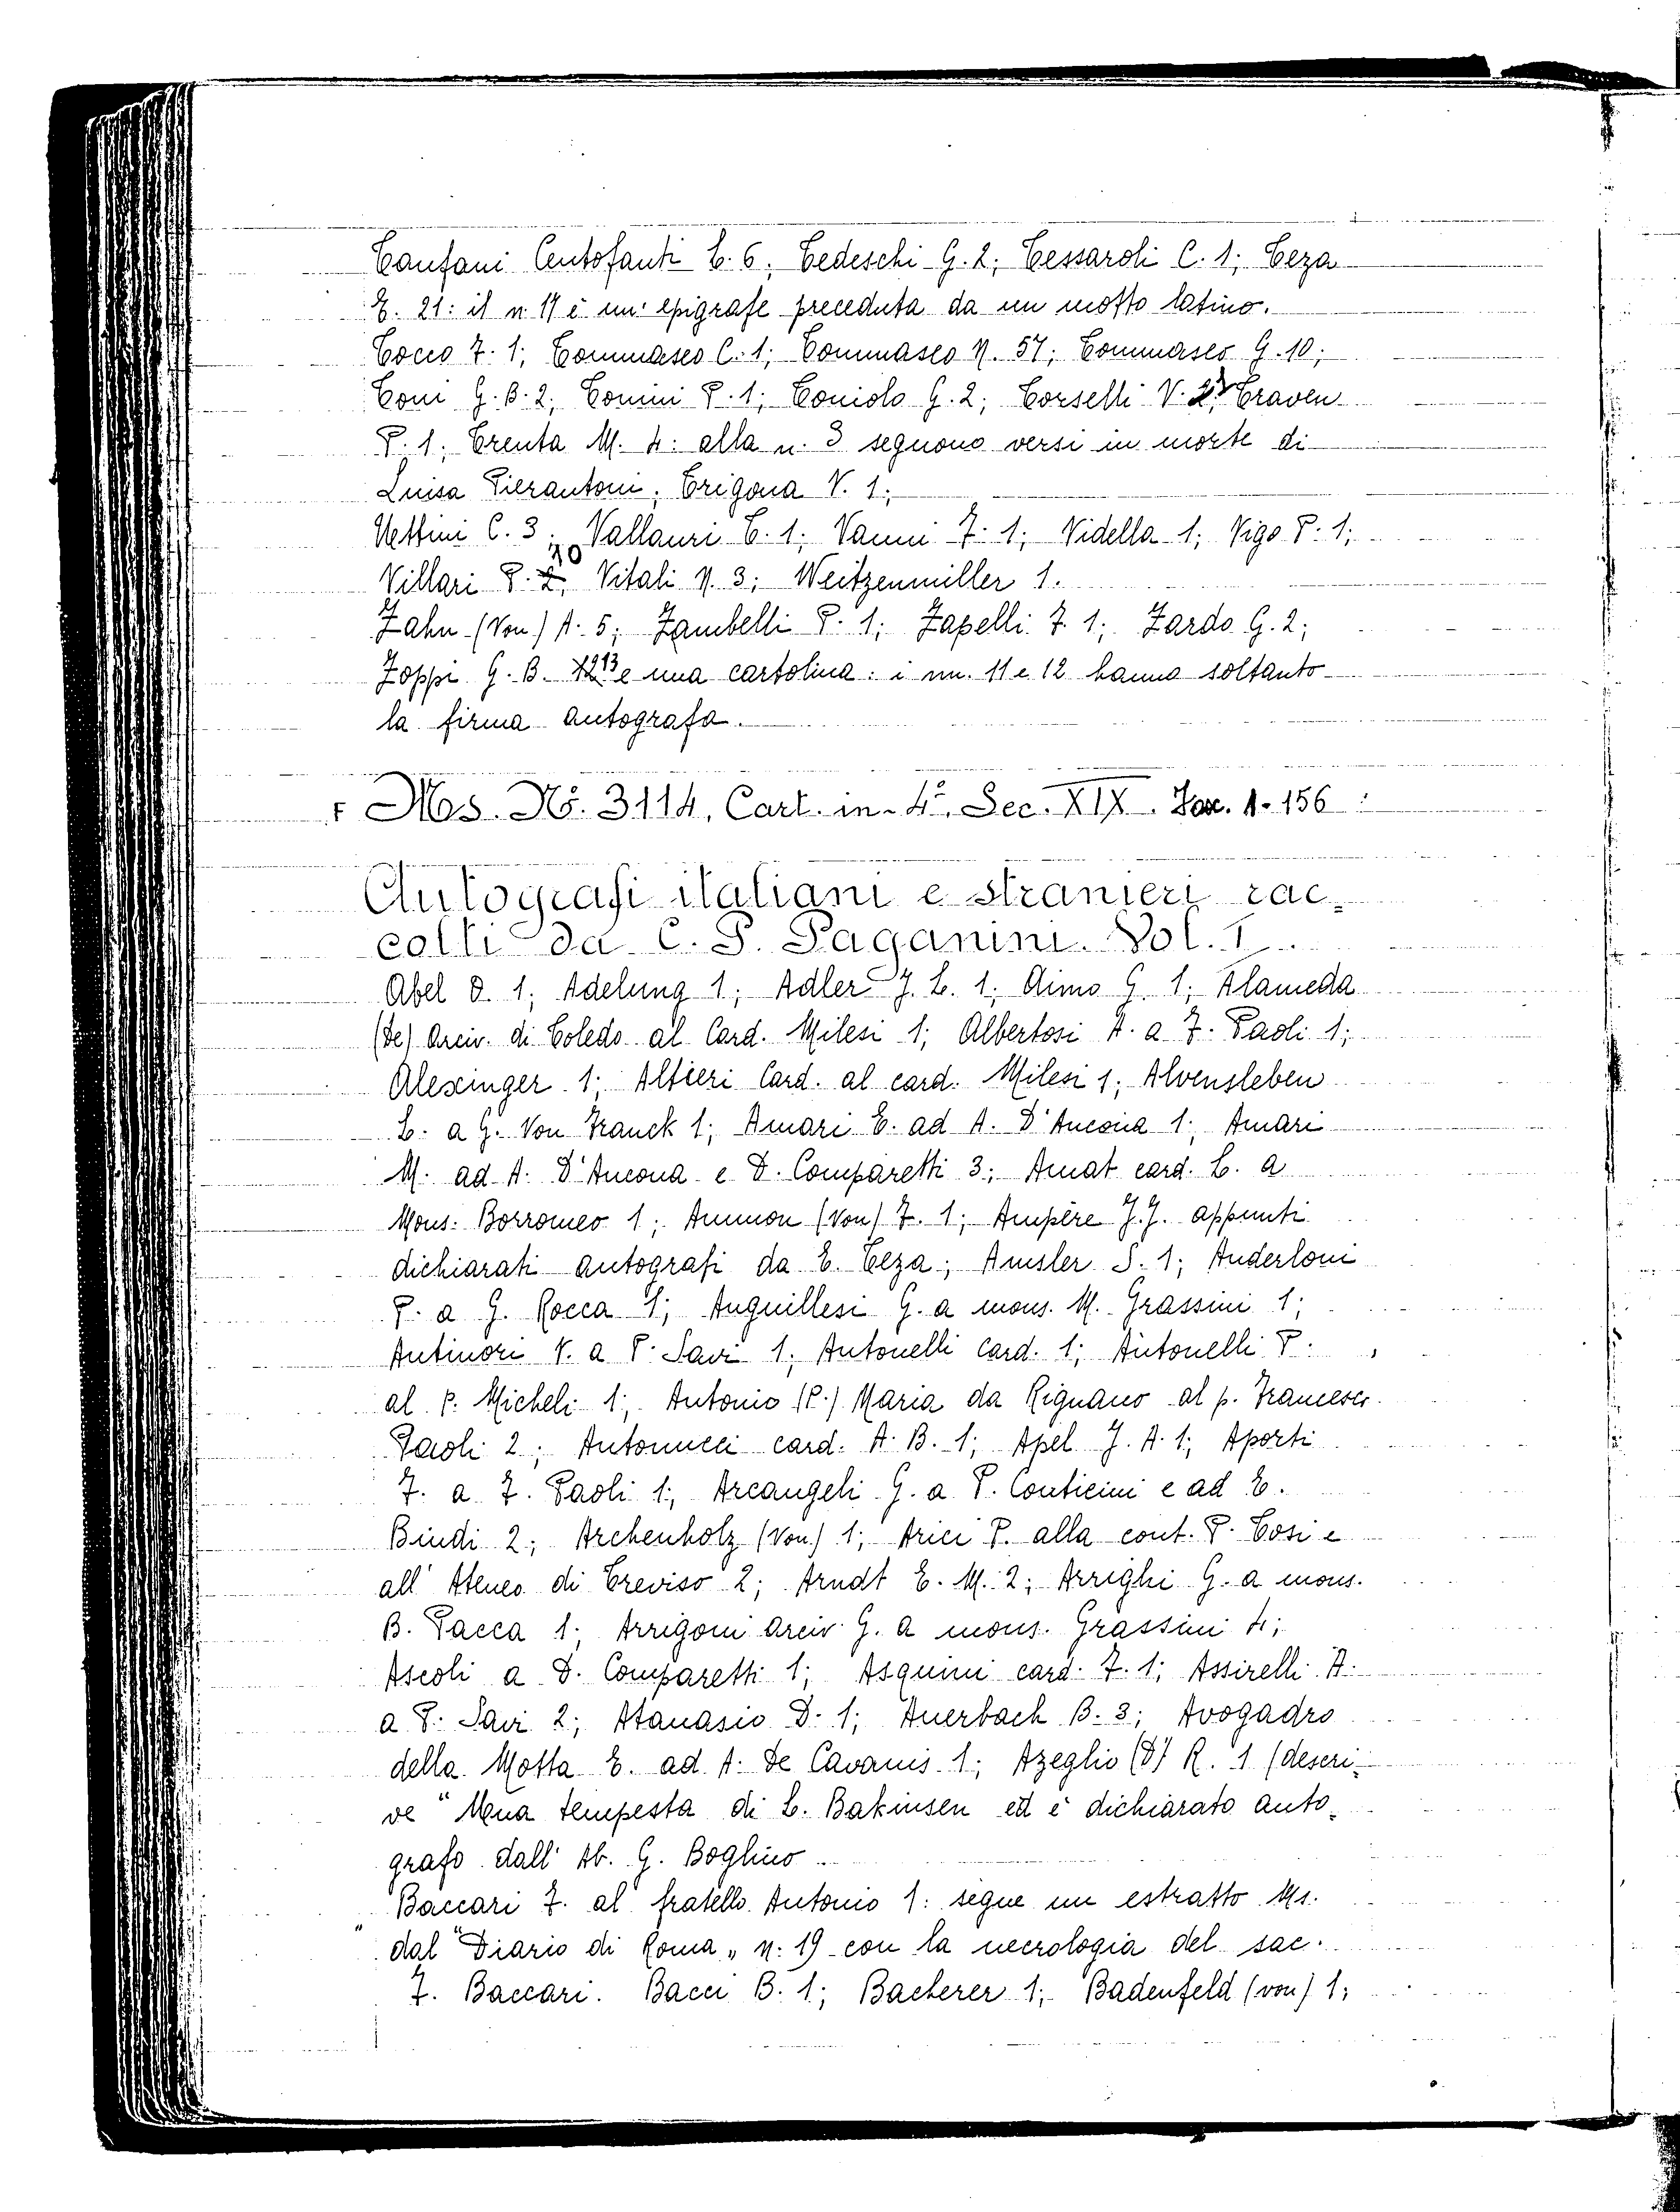 Tanfani Centofanti L. 6; Tedeschi G. 2; Tessaroli C. 1; Teza
E. 21: il n. 17 è un' epigrafe preceduta da un motto latino.
Tocco F. 1; Tommaseo C. 1; Tommaseo N. 57; Tommaseo G. 10;
Toni G. B. 2; Tonini P. 1; Toniolo G. 2; Torselli V. 2; Traven
P. 1; Trenta M. 4: alla n. 3 seguono versi in morte di
Luisa Pierantoni; Trigona V. 1;
Uttini C. 3; Vallauri T. 1; Vanni F. 1; Vidella 1; Vigo P. 1;
Villari P. 10; Vitali N. 3; Weitzenmiller 1.
Zahn (Von) A. 5; Zambelli P. 1; Zapelli F. 1; Zardo G. 2;
Zoppi G. B. 13 e una cartolina: i nn. 11 e 12 hanno soltanto
la firma autografa.
Mss. N°. 3114, Cart. in-4°, Sec. XIX. Fasc. 1-156
Autografi italiani e stranieri rac=
colti da C. P. Paganini. Vol. I.
Abel O. 1; Adelung 1; Adler J. L. 1; Aimo G. 1; Alameda
(De) Arciv. di Toledo al Card. Milesi 1; Albertosi A. a F. Paoli 1;
Alexinger 1; Altieri Card. al card. Milesi 1; Alvensleben
L. a G. Von Franck 1; Amari E. ad A. D'Ancona 1; Amari
M. ad A. D'Ancona e D. Comparetti 3; Amat card. L. a
Mons. Borromeo 1; Ammon (Von) F. 1; Ampère J. J. appunti
dichiarati autografi da E. Teza; Amsler S. 1; Anderloni
P. a G. Rocca 1; Anguillesi G. a mons. M. Grassini 1;
Antinori V. a P. Savi 1; Antonelli Card. 1; Antonelli P.
al P. Micheli 1; Antonio (P.) Maria da Rignano al p. Francesco
Paoli 2; Antonucci card. A. B. 1; Apel J. A. 1; Aporti
F. a F. Paoli 1; Arcangeli G. a P. Conticini e ad E.
Bindi 2; Archenholz (Von) 1; Arici P. alla cont. P. Tosi e
all' Ateneo di Treviso 2; Arndt E. M. 2; Arrighi G. a mons.
B. Pacca 1; Arrigoni Arciv. G. a mons. Grassini 4;
Ascoli a D. Comparetti 1; Asquini card. F. 1; Assirelli A.
a P. Savi 2; Atanasio D. 1; Auerbach B. 3; Avogadro
della Motta E. ad A. De Cavanis 1; Azeglio (D') R. 1 (descri=
ve "Una tempesta di L. Bakinsen ed è dichiarato auto=
grafo dall' Ab. G. Boglino.
Baccari F. al fratello Antonio 1: segue un estratto Ms.
dal "Diario di Roma„ n. 19 con la necrologia del sac.
F. Baccari. Bacci B. 1; Bacherer 1; Badenfeld (von) 1;